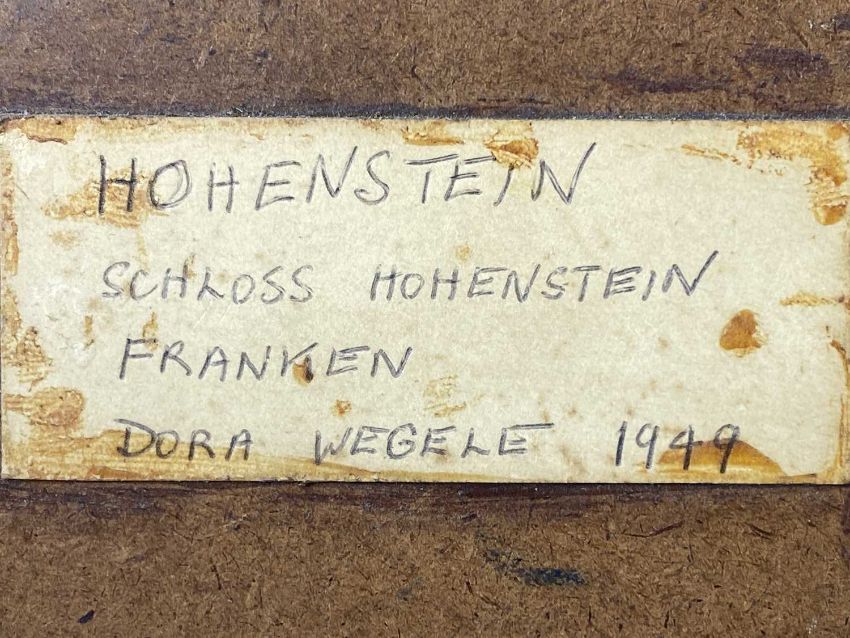 HOHENSTEIN
SCHLOSS HOHENSTEIN
FRANKEN
DORA WEGELE 1949